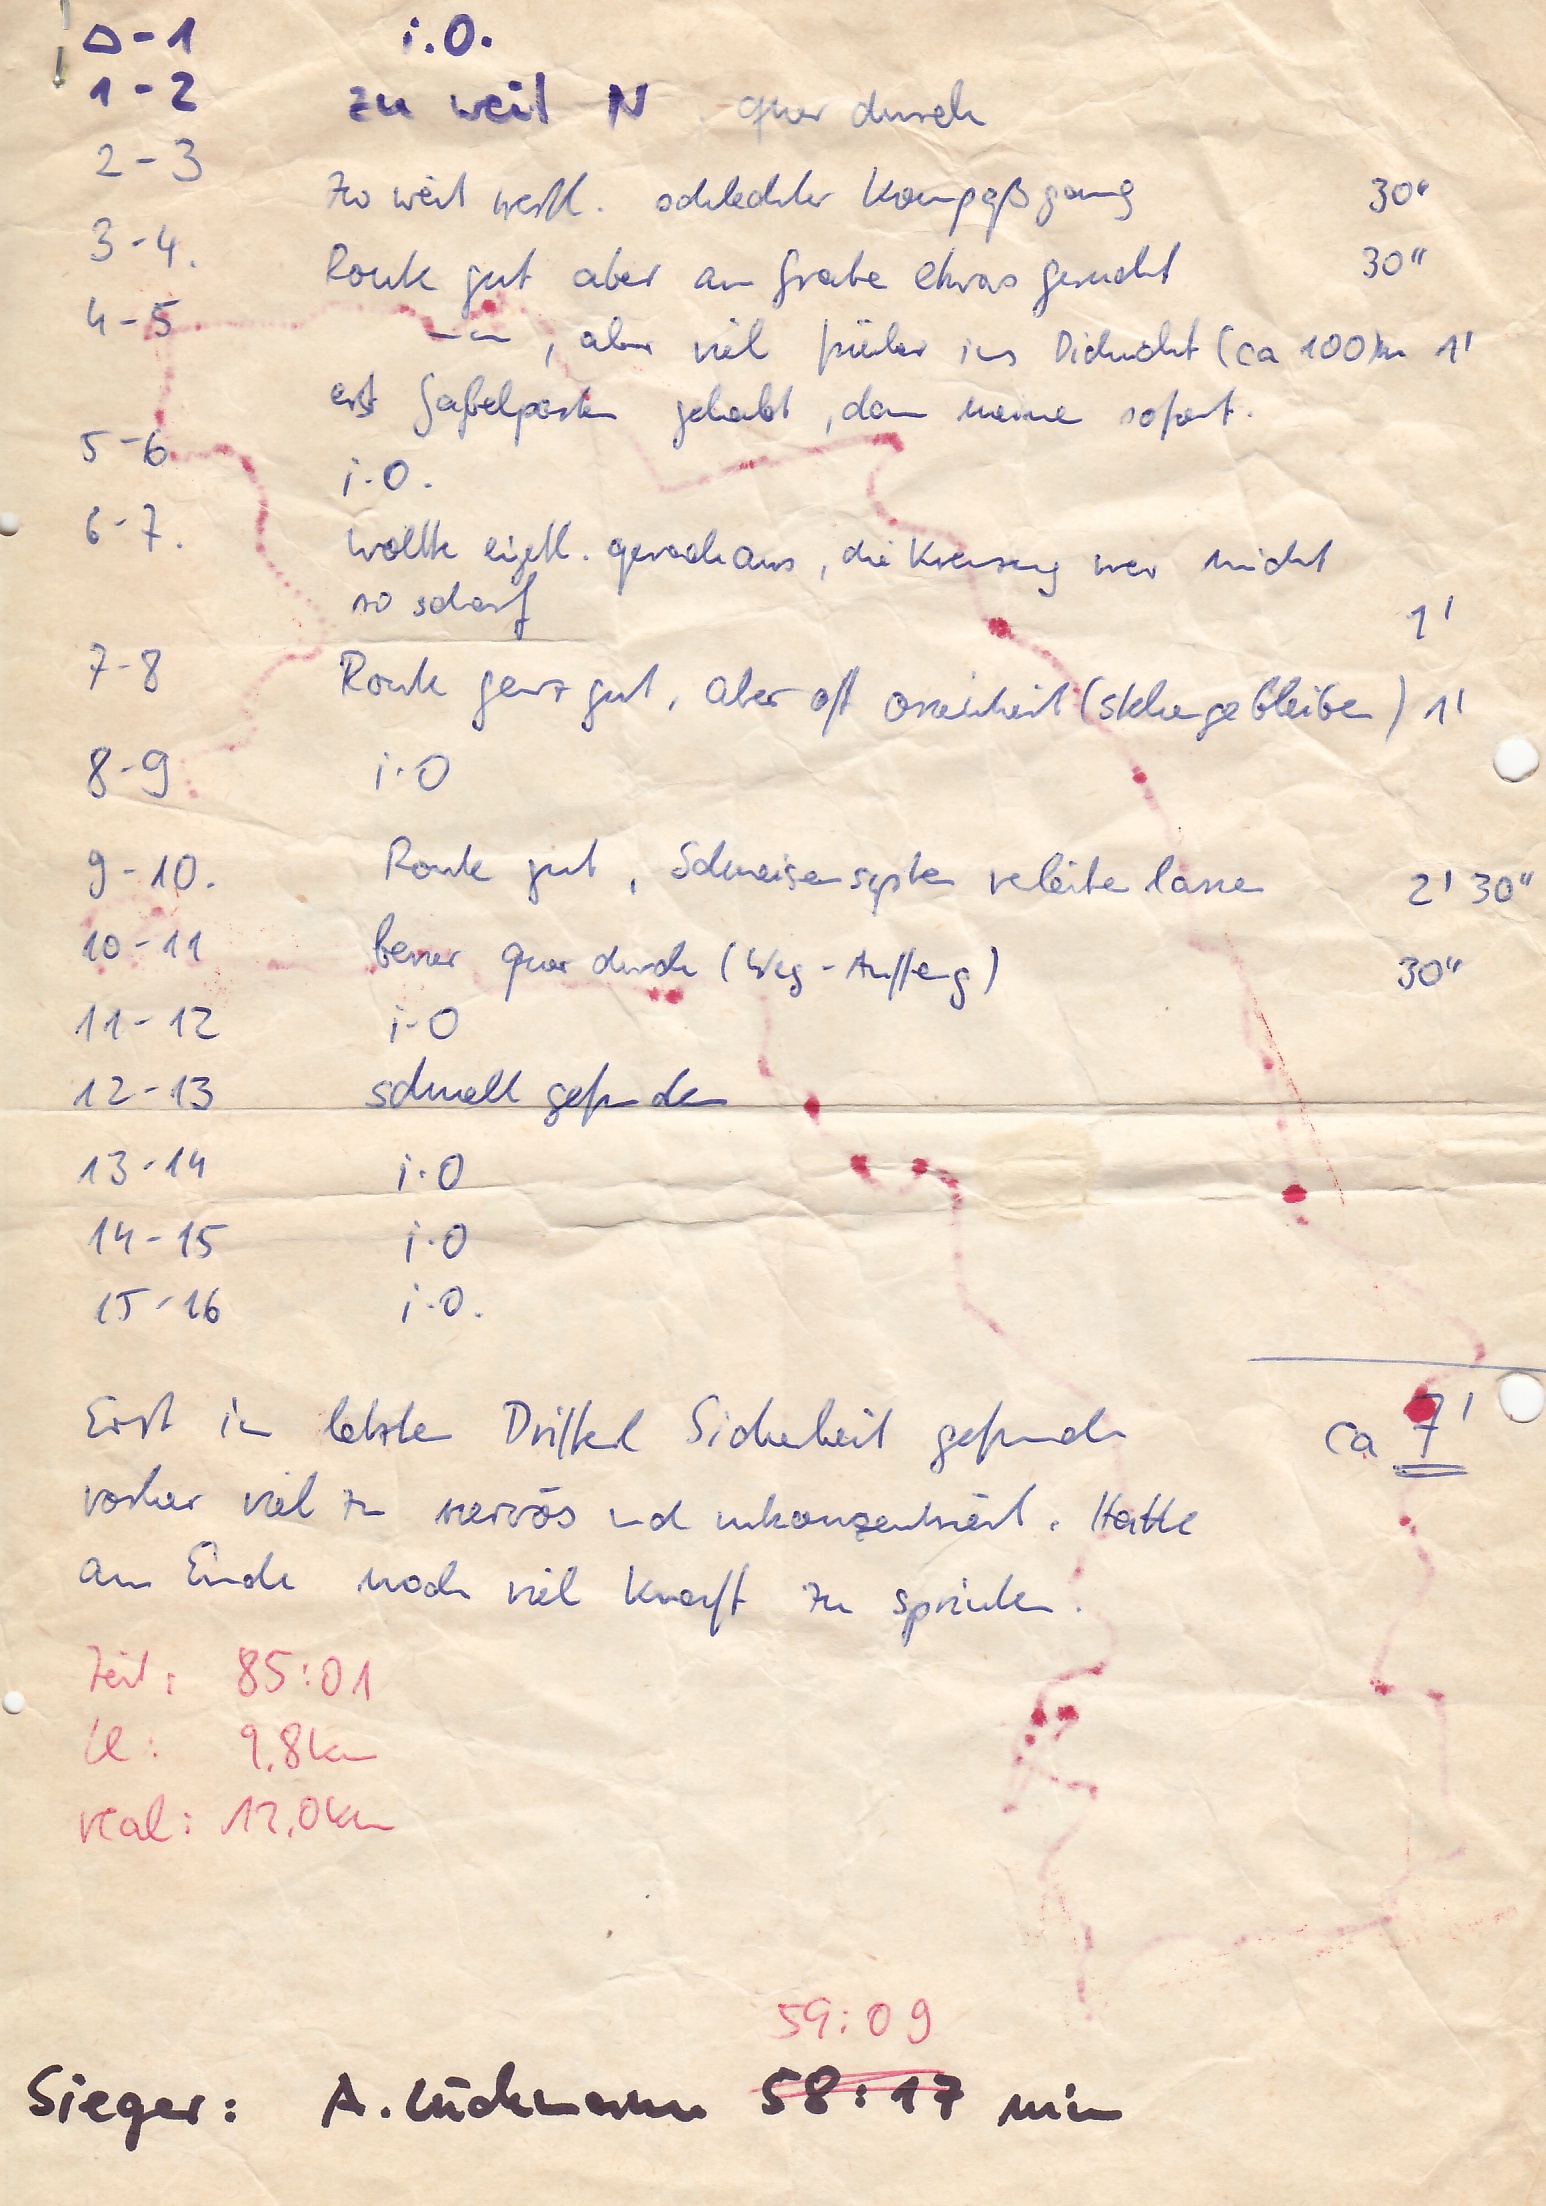 △-1 i.O.
1-2 zu weit N quer durch
2-3 zu weit westl. schlechter Kompaßgang 30"
3-4. Route gut aber am Grabe etwas gesucht 30"
4-5 -"- , aber viel früher ins Dickicht (ca 100)m 1'
erst Gabelposten gehabt, dann meine sofort.
5-6 i.O.
6-7. wollte eigtl. geradeaus, die Kreuzung war nicht
so scharf 1'
7-8 Route ganz gut, aber oft (stehengebliben) 1'
8-9 i.O
9-10. Route gut, Schneisensystem verleiten lassen 2' 30"
10-11 besser quer durch (Weg-Auffang) 30"
11-12 i-O
12-13 schnell gefunden
13-14 i.O
14-15 i.O
15-16 i.O.
Erst im letzten Drittel Sicherheit gefunden ca 7'
vorher viel zu nervös und unkonzentriert. Hatte
am Ende noch viel Kraft zu sprinten.
Zeit: 85:01
9,8km
real: 12,0km
59:09
Sieger: A. Lückmann 58:17 min